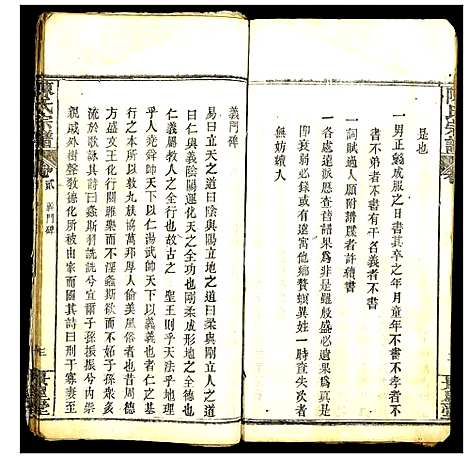 是也
一男正冠成服之日書其卒之年月童年不書不孝者不
書不弟者不書有干名義者不書
一詞賦過人願附譜牒者許續書
一各處遺派歷查舊譜果爲非是雖殷盛必遺果爲真是
即衰弱必錄或有遠寓他鄉贅螟異姓一時失查失次者
無妨續入
義門碑
易曰立天之道曰陰與陽立地之道曰柔與剛立人之道
曰仁與義陰陽運化天之全功也剛柔相濟地之全德也
仁義嚴教人之全行也故古之 聖王則乎天法乎地理
乎人堯舜帥天下以仁湯武帥天下以義義也者仁之基
行之本也教九族協萬邦人倫美風俗者也昔周德
方盛文王化行關雎樂而不淫螽斯欲而不妬子孫衆多
流於歌詠其詩曰螽斯羽詵詵兮宜爾子孫振振兮內崇
親戚外樹聲教德化所被由家而國其詩曰刑于寡妻至
陳氏宗譜
卷
貳
義門碑
陳氏宗譜
卷